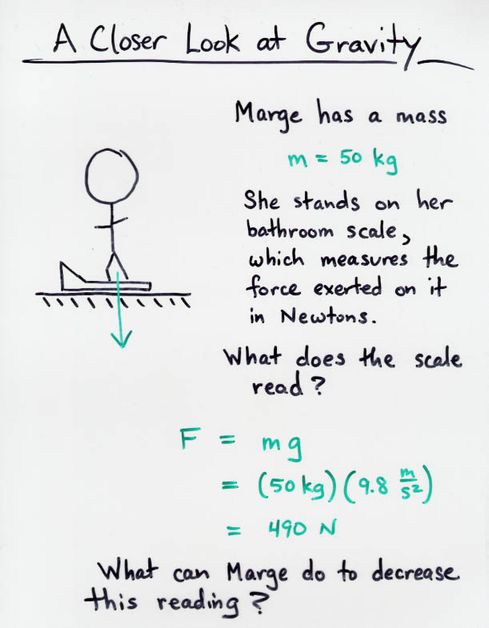 A Closer Look at Gravity
Marge has a mass
m = 50 kg
She stands on her
bathroom scale,
which measures the
force exerted on it
in Newtons.
What does the scale
read?
F = mg
= (50 kg) (9.8 m/s²)
= 490 N
What can Marge do to decrease
this reading?